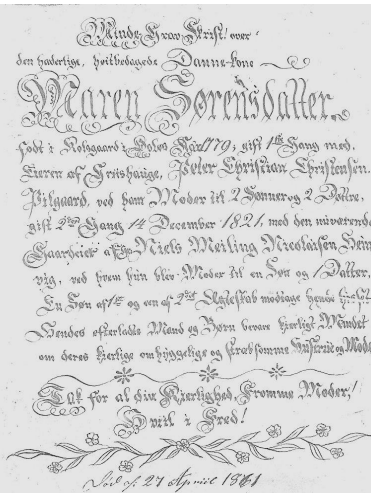 Minde Grav Skrift over
den hæderlige, høitbedagede Danne-kone
Maren Sørensdatter
født i Kongaard i Sogn 1779; gift 1ste Gang med
Eieren af Griishauge, Peter Christian Christensen
Bilgaard, ved ham Moder til 2 Sønner og 2 Døttre,
gift 2den Gang 14 December 1821, med den nuværende
Gaardeier Niels Meiling Nicolaisen
vig, ved hvem hun blev Moder til en Søn og 1 Datter,
En Søn af 1ste og een af 2det Ægteskab modtage hende
Hendes efterladte Mand og Børn bevare kierligt Mindet
om deres kierlige omhyggelige og stræbsomme Hustrue og Mode
Tak for al din Kierlighed, Fromme Moder!
Hviil i Fred!
Død d. 27 April 1861